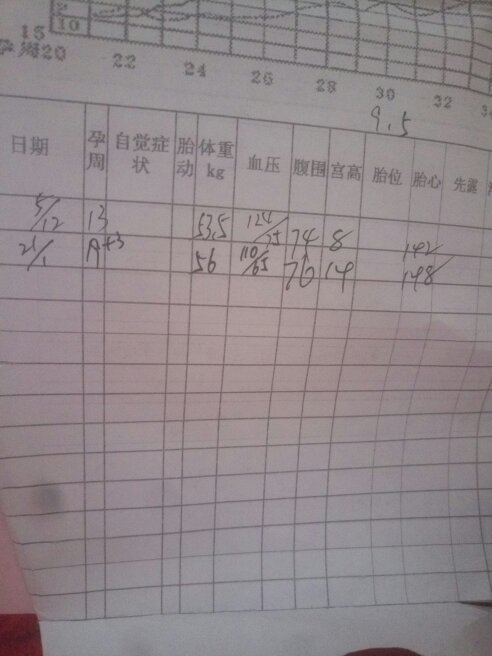 10
15
孕周20 22 24 26 28 30 32
9.5
日期 孕周 自觉症状 胎动 体重kg 血压 腹围 宫高 胎位 胎心 先露
5/12 13 53.5 124/75 74 8 142
21/1 19+3 56 110/65 76 14 148